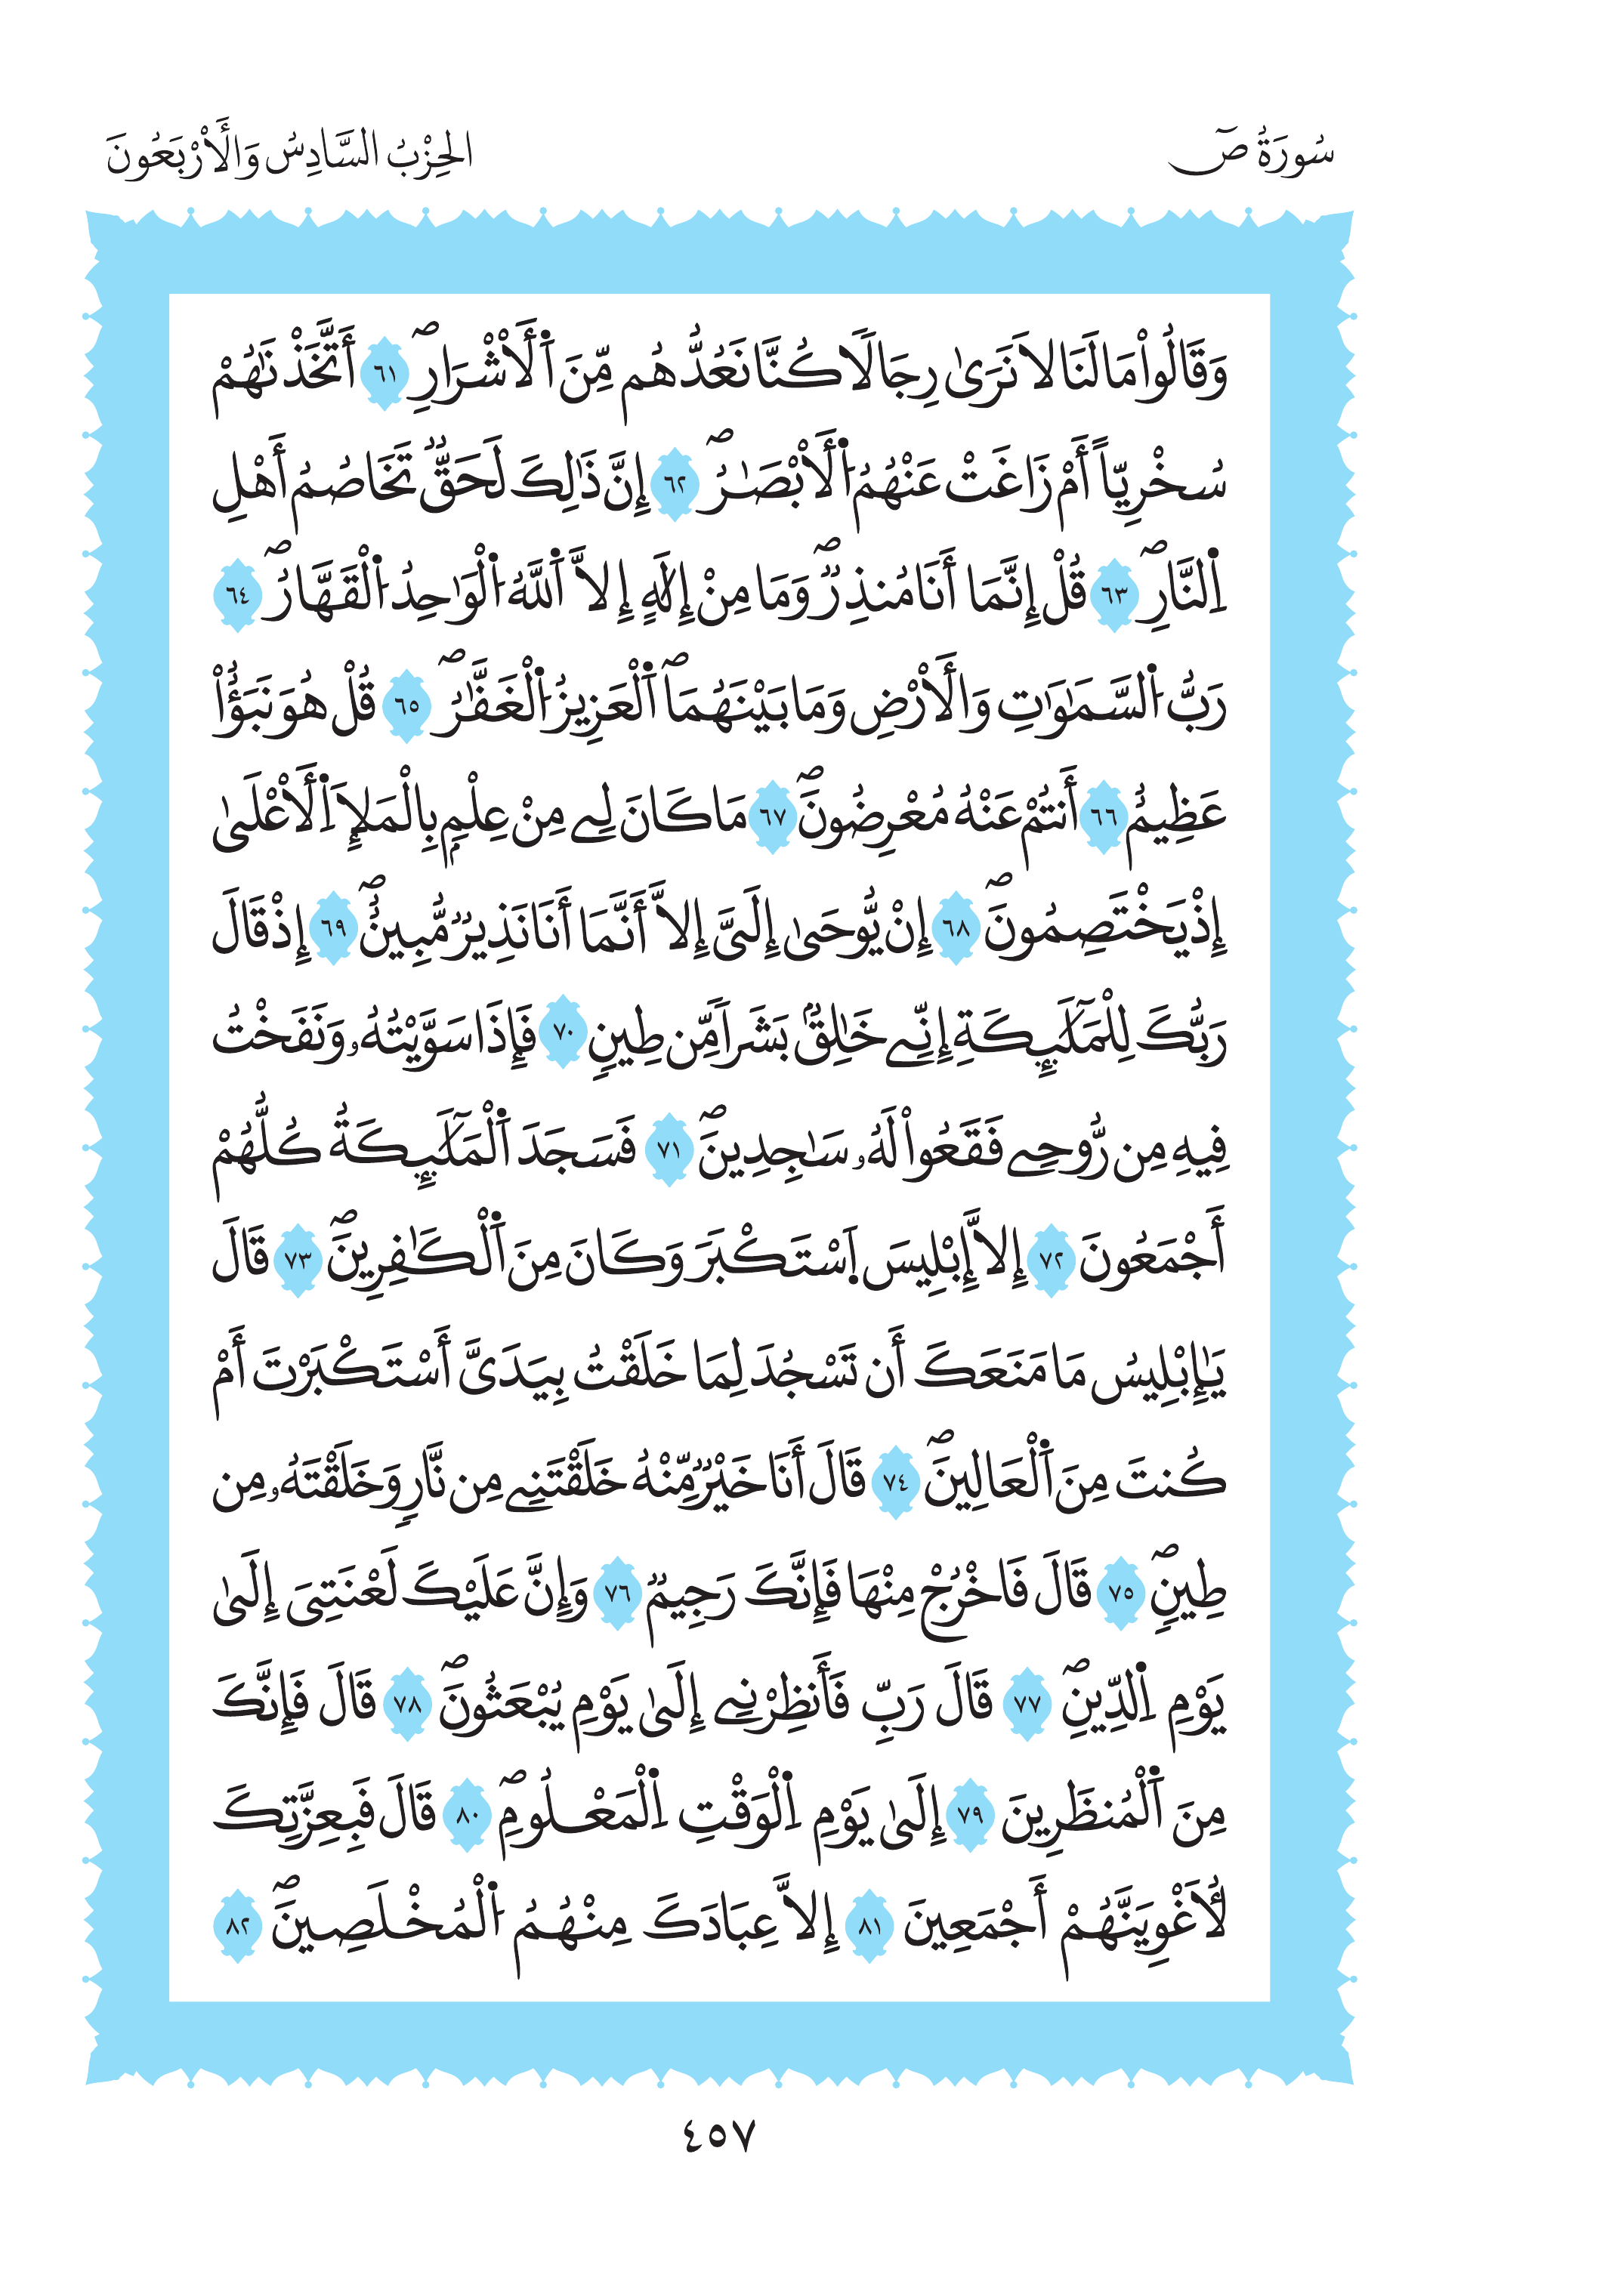 سُورَةُ صٓ
الحِزْبُ السَّادِسُ وَالْأَرْبَعُونَ
وَقَالُواْ مَا لَنَا لَا نَرَىٰ رِجَالاً كُنَّا نَعُدُّهُم مِّنَ اَ۬لْأَشْرَارِۖ ٦١ أَتَّخَذْنَٰهُمْ
سُخْرِيّاً أَمْ زَاغَتْ عَنْهُمُ اُ۬لْأَبْصَٰرُۖ ٦٢ إِنَّ ذَٰلِكَ لَحَقّٞ تَخَاصُمُ أَهْلِ
اِ۬لنَّارِۖ ٦٣ قُلْ إِنَّمَا أَنَا مُنذِرٞۖ وَمَا مِنْ إِلَٰهٍ إِلَّا اَ۬للَّهُ اُ۬لْوَٰحِدُ اُ۬لْقَهَّارُۖ ٦٤
رَبُّ اُ۬لسَّمَٰوَٰتِ وَالْأَرْضِ وَمَا بَيْنَهُمَاۖ اَ۬لْعَزِيزُ اُ۬لْغَفَّٰرُۖ ٦٥ قُلْ هُوَ نَبَؤٌاْ
عَظِيمٌ ٦٦ أَنتُمْ عَنْهُ مُعْرِضُونَۖ ٦٧ مَا كَانَ لِے مِنْ عِلْمِۢ بِالْمَلَإِ اِ۬لْأَعْلَىٰ
إِذْ يَخْتَصِمُونَۖ ٦٨ إِنْ يُّوحَىٰ إِلَىَّ إِلَّا أَنَّمَا أَنَا نَذِيرٞ مُّبِينٌۖ ٦٩ إِذْ قَالَ
رَبُّكَ لِلْمَلَٰٓئِكَةِ إِنِّے خَٰلِقُۢ بَشَراً مِّن طِينٍ ٧٠ فَإِذَا سَوَّيْتُهُۥ وَنَفَخْتُ
فِيهِ مِن رُّوحِے فَقَعُواْ لَهُۥ سَٰجِدِينَۖ ٧١ فَسَجَدَ اَ۬لْمَلَٰٓئِكَةُ كُلُّهُمْ
أَجْمَعُونَ ٧٢ إِلَّا إِبْلِيسَ اَ۪سْتَكْبَرَ وَكَانَ مِنَ اَ۬لْكَٰفِرِينَۖ ٧٣ قَالَ
يَٰإِبْلِيسُ مَا مَنَعَكَ أَن تَسْجُدَ لِمَا خَلَقْتُ بِيَدَىَّ أَسْتَكْبَرْتَ أَمْ
كُنتَ مِنَ اَ۬لْعَالِينَۖ ٧٤ قَالَ أَنَا خَيْرٞ مِّنْهُ خَلَقْتَنِے مِن نَّارٍ وَخَلَقْتَهُۥ مِن
طِينٍۖ ٧٥ قَالَ فَاخْرُجْ مِنْهَا فَإِنَّكَ رَجِيمٞ ٧٦ وَإِنَّ عَلَيْكَ لَعْنَتِىَ إِلَىٰ
يَوْمِ اِ۬لدِّينِۖ ٧٧ قَالَ رَبِّ فَأَنظِرْنِے إِلَىٰ يَوْمِ يُبْعَثُونَۖ ٧٨ قَالَ فَإِنَّكَ
مِنَ اَ۬لْمُنظَرِينَ ٧٩ إِلَىٰ يَوْمِ اِ۬لْوَقْتِ اِ۬لْمَعْلُومِۖ ٨٠ قَالَ فَبِعِزَّتِكَ
لَأُغْوِيَنَّهُمْ أَجْمَعِينَ ٨١ إِلَّا عِبَادَكَ مِنْهُمُ اُ۬لْمُخْلَصِينَۖ ٨٢
٤٥٧